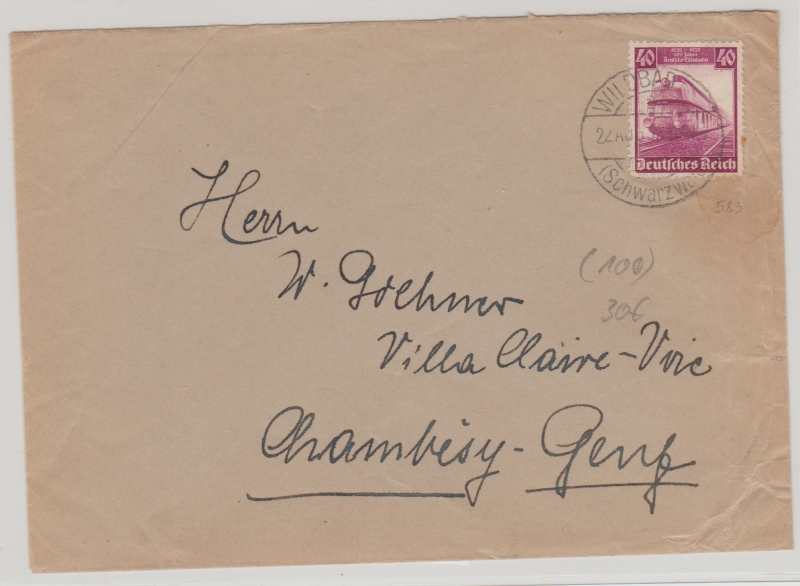 40 1835 - 1935 40
100 Jahre
Deutsche Eisenbahn
Deutsches Reich
WILDBAD
22.AUG.
(Schwarzwald
553
Herrn
W. Goehner
Villa Claire-Voie
Chambésy-Genf
(100)
30€